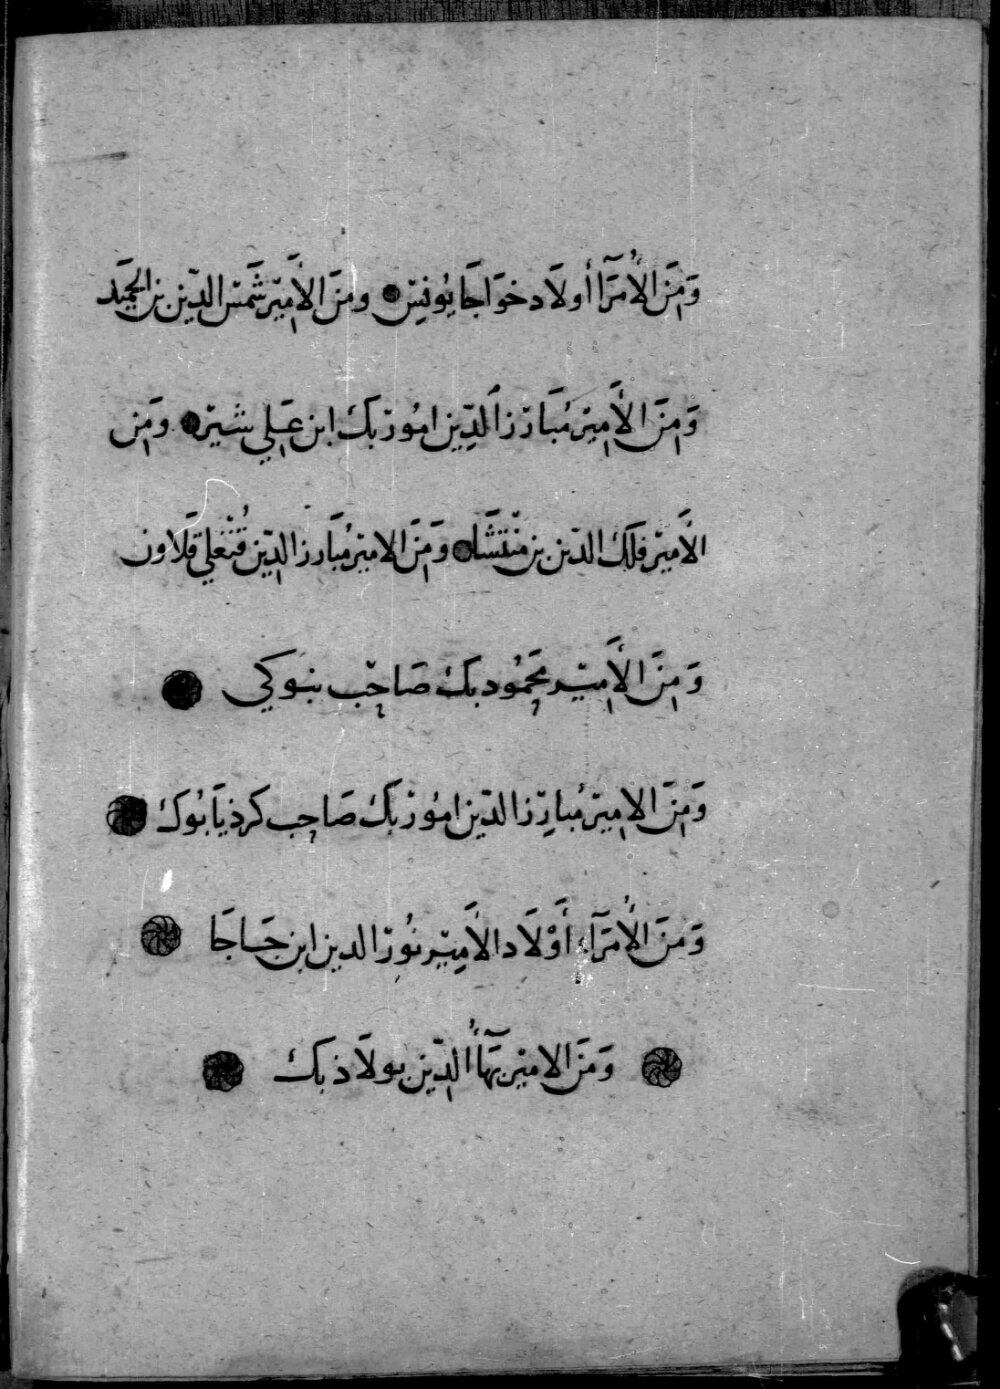 وَمِنَ الأُمَرَآ أولَاد خوَاجَا يُونس ومِنَ الأَمِيْر شَمْس الدّين بن الحَمِيد
وَمِنَ الأَمِيْر مُبَارز الدِّين امُورْ بَك ابن عَلِي شيْر ومن
الأَمِيْر فلَك الدّين بن مَنْتَشَا وَمِنَ الامِيْر مُبَارز الدّين قُتْغلي قَلاون
وَمِنَ الأَمِيْر مَحَمُود بك صَاحِب
وَمِنَ الامِيْر مُبارِز الدّين امُورْ بَك صَاحِب
وَمِنَ الأُمَرَآءِ أَوْلَاد الأَمِيْر نُورْ الدين ابن جَاجَا
وَمِنَ الامِيْر بَهَآءُ الدّين بولَاذ بَك